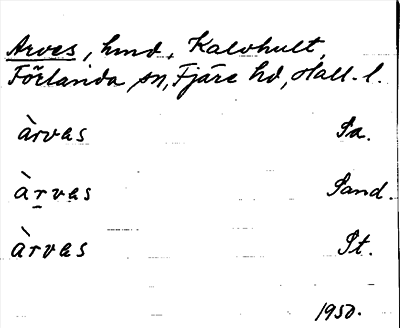 Arves, hmd, Kalvhult,
Förlanda sn, Fjäre hd, Hall. l.
àrvas Pa.
àrvas Pand.
àrvas Pt.
1950.